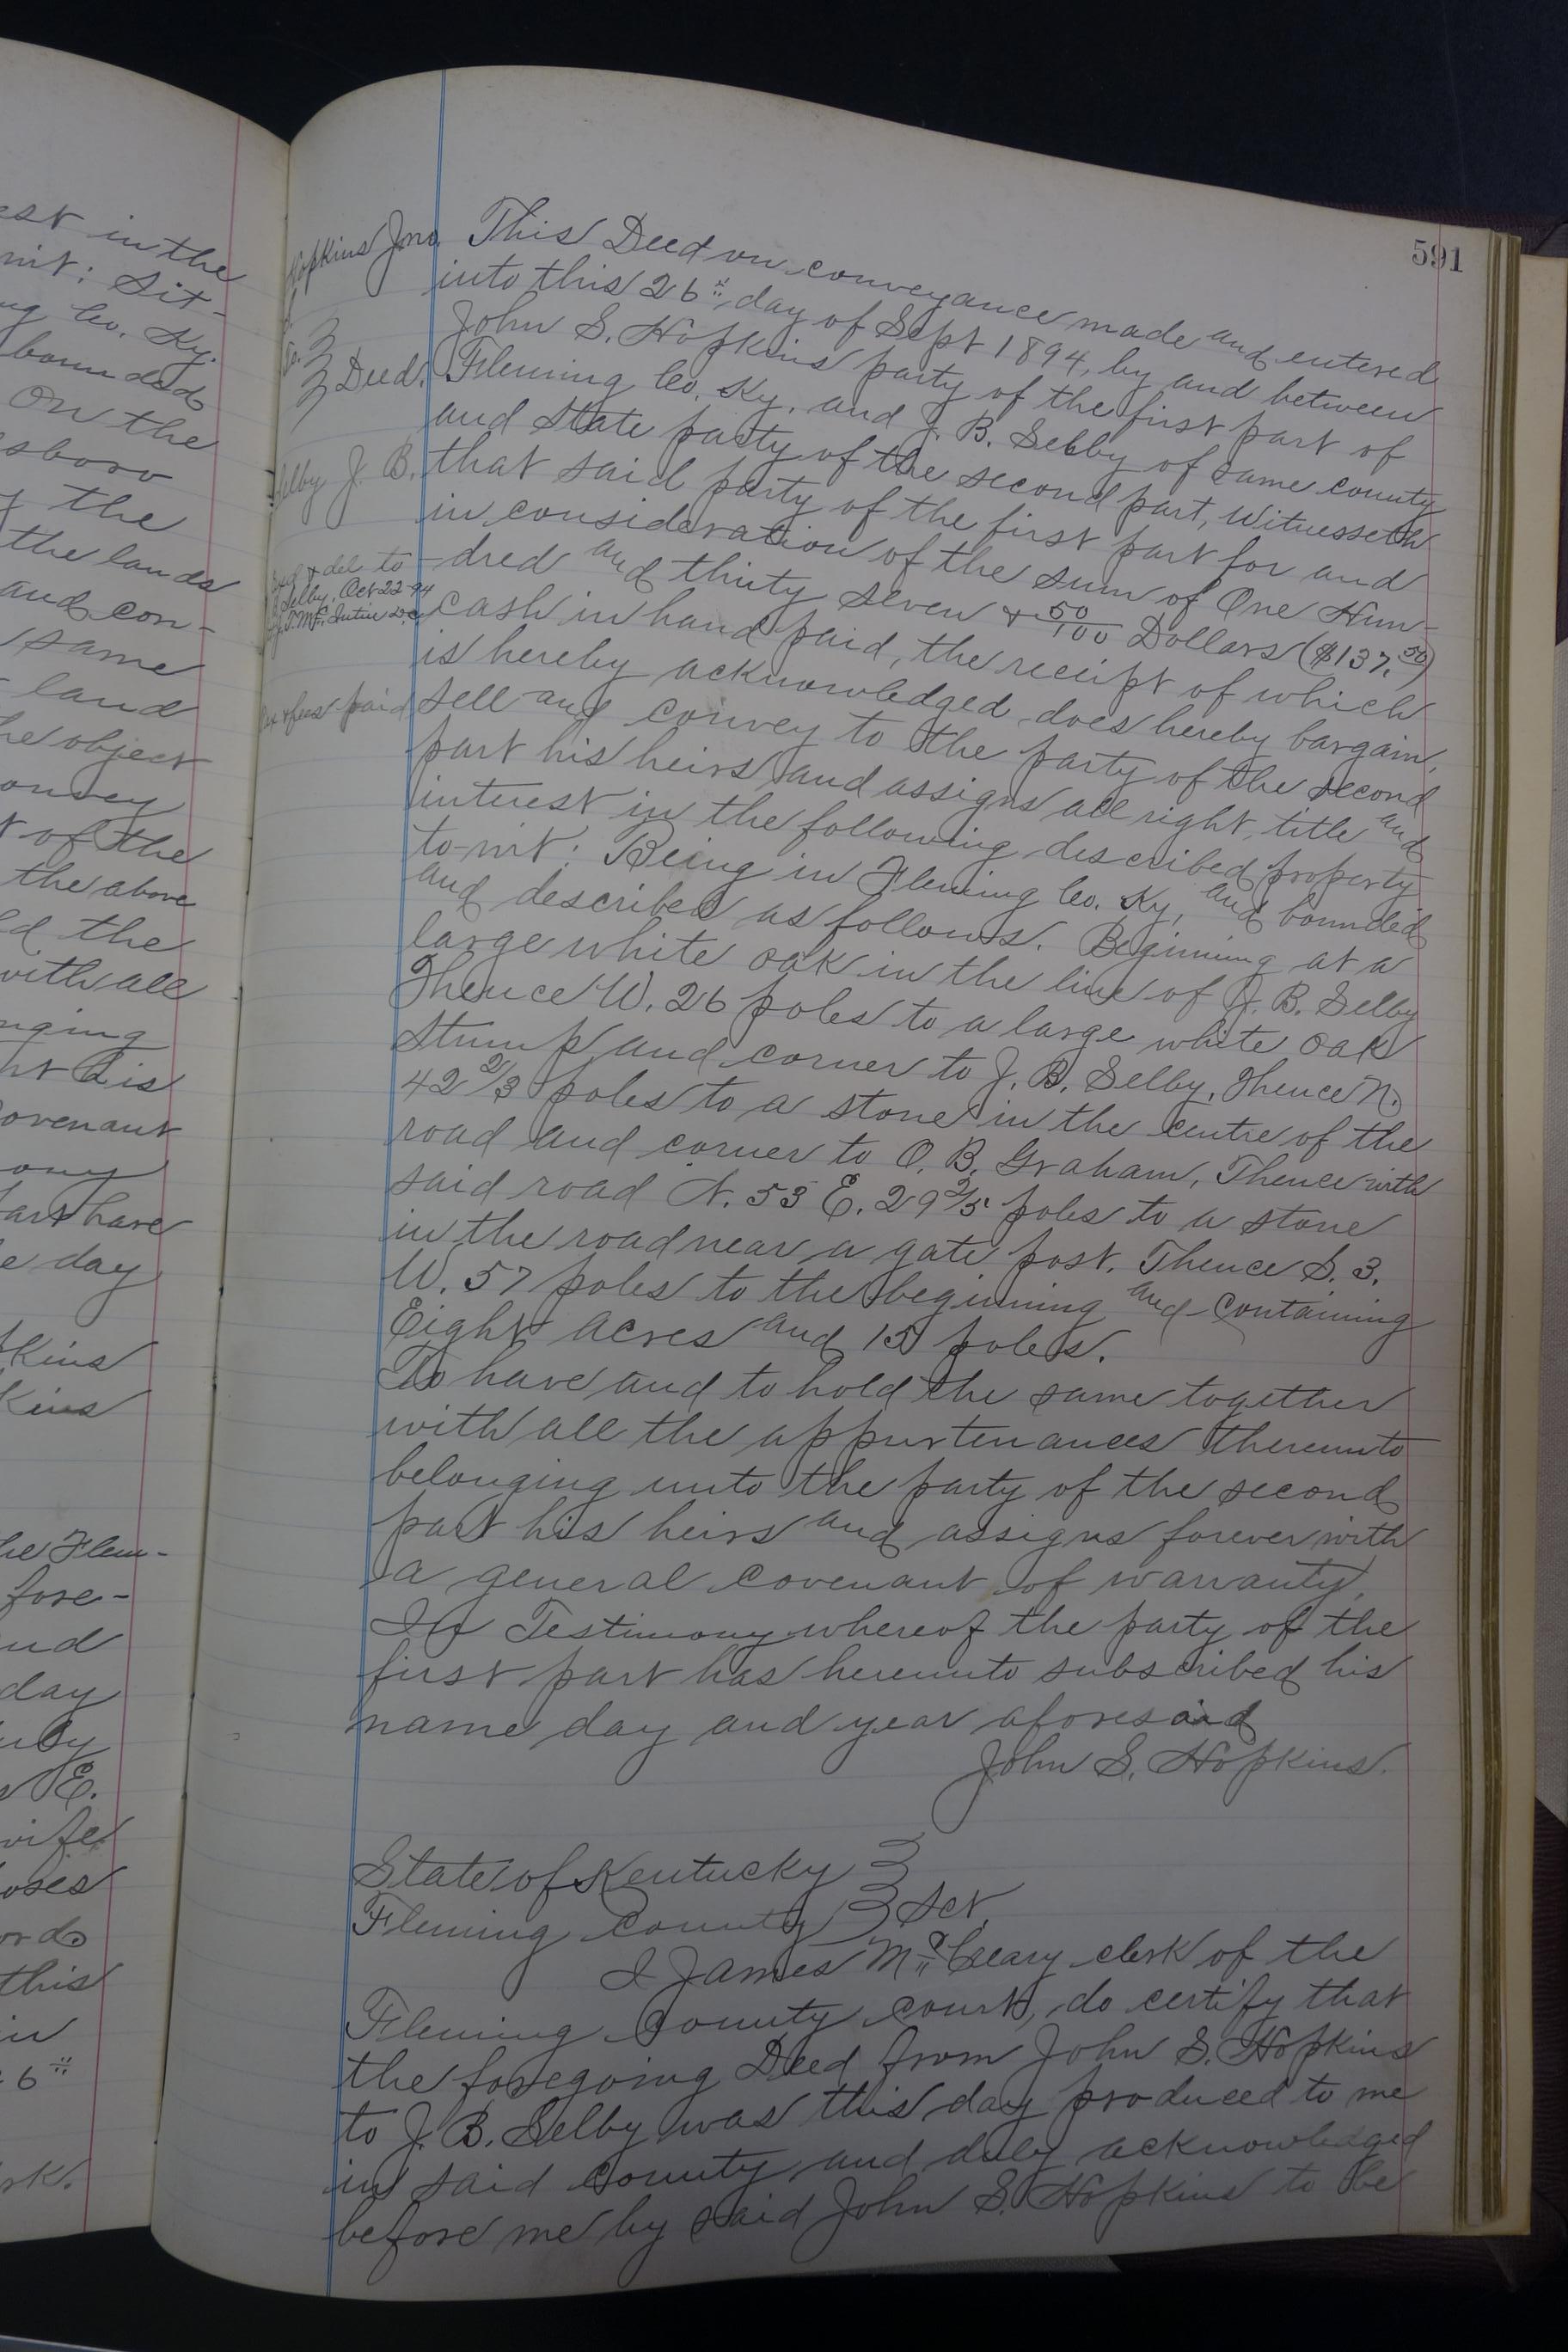 est in the
mit: Sit-
ng Co. Ky.
bounded
On the
sboro
y the
the lands
and con-
same
land
he object
onvey
t of the
the above
d the
with all
nging
ht is
ovenant
ony
part have
e day
kins
kins
he Flem-
fore-
and
day
uly
E.
wife
oses
ord
this
in
26th
rk.
591
Hopkins Jno.
Deed.
Selby J. B.
& del to
Selby, Oct 22-94
Tax & fees paid
This Deed on conveyance made and entered
into this 26th day of Sept 1894, by and between
John S. Hopkins party of the first part of
Fleming Co. Ky. and J. B. Selby of same county
and State party of the second part, Witnesseth
that said party of the first part for and
in consideration of the sum of One Hun-
dred and thirty seven & 50/100 Dollars ($137.50)
cash in hand paid, the receipt of which
is hereby acknowledged does hereby bargain,
sell and convey to the party of the second
part his heirs and assigns all right, title and
interest in the following described property
to-wit: Being in Fleming Co. Ky, and bounded
and described as follows. Beginning at a
large white oak in the line of J. B. Selby
Thence W. 26 poles to a large white oak
stump and corner to J. B. Selby, Thence N.
42 2/3 poles to a stone in the centre of the
road and corner to O. B. Graham, Thence with
said road N. 53 E. 29 2/5 poles to a stone
in the road near a gate post. Thence S. 3.
W. 57 poles to the beginning and containing
Eight acres and 15 poles.
To have and to hold the same together
with all the appurtenances thereunto
belonging unto the party of the second
part his heirs and assigns forever with
a general covenant of warranty,
In Testimony whereof the party of the
first part has hereunto subscribed his
name day and year aforesaid
John S. Hopkins.
State of Kentucky
Fleming County } Sct,
I James McCleary clerk of the
Fleming County court, do certify that
the foregoing Deed from John S. Hopkins
to J. B. Selby was this day produced to me
in said County and duly acknowledged
before me by said John S. Hopkins to be